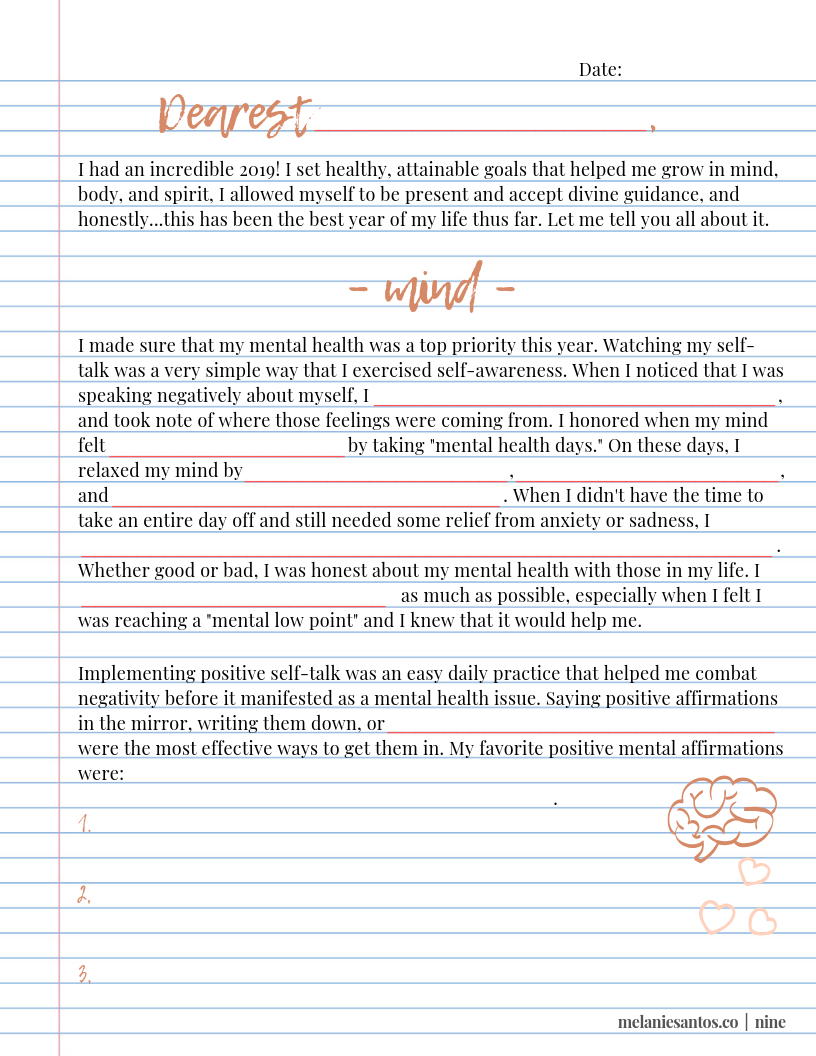 Date:
Dearest ,
I had an incredible 2019! I set healthy, attainable goals that helped me grow in mind,
body, and spirit, I allowed myself to be present and accept divine guidance, and
honestly...this has been the best year of my life thus far. Let me tell you all about it.
- mind -
I made sure that my mental health was a top priority this year. Watching my self-
talk was a very simple way that I exercised self-awareness. When I noticed that I was
speaking negatively about myself, I ,
and took note of where those feelings were coming from. I honored when my mind
felt by taking "mental health days." On these days, I
relaxed my mind by , ,
and . When I didn't have the time to
take an entire day off and still needed some relief from anxiety or sadness, I
.
Whether good or bad, I was honest about my mental health with those in my life. I
as much as possible, especially when I felt I
was reaching a "mental low point" and I knew that it would help me.
Implementing positive self-talk was an easy daily practice that helped me combat
negativity before it manifested as a mental health issue. Saying positive affirmations
in the mirror, writing them down, or
were the most effective ways to get them in. My favorite positive mental affirmations
were:
.
1.
2.
3.
melaniesantos.co | nine